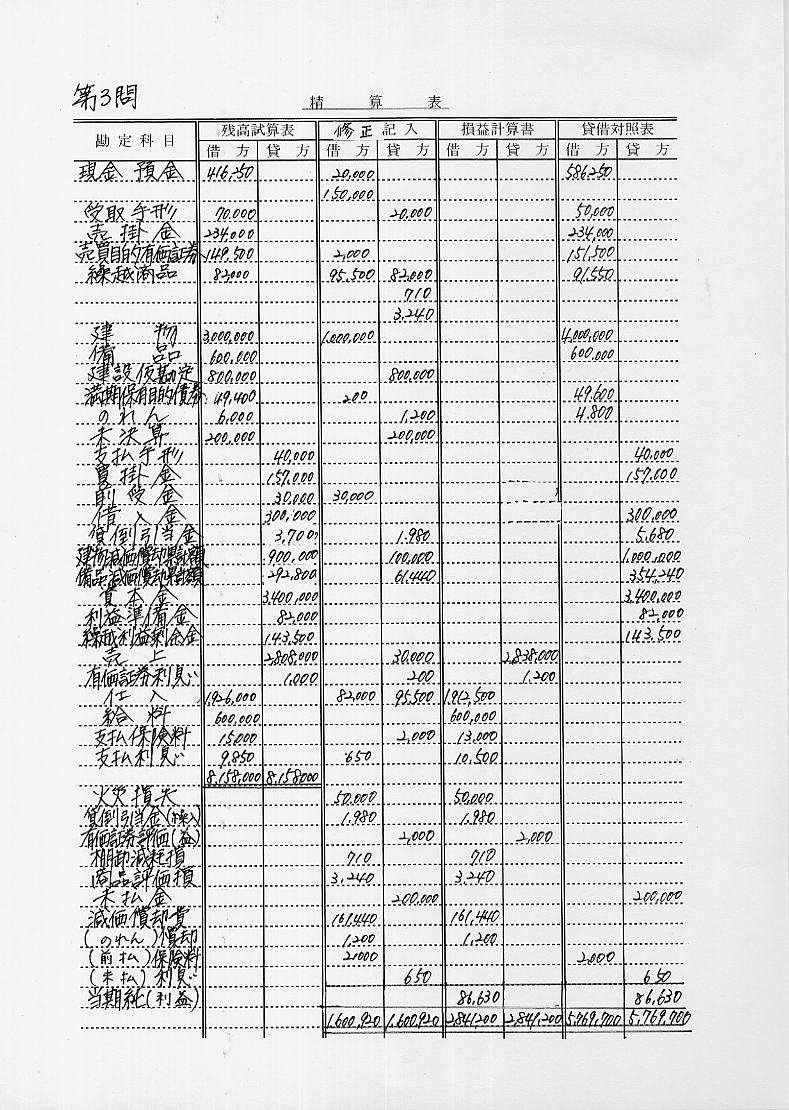 第3問
精 算 表
勘定科目 残高試算表 修正記入 損益計算書 貸借対照表
借方 貸方 借方 貸方 借方 貸方 借方 貸方
現金預金 416,250 20,000 586,250
150,000
受取手形 70,000 20,000 50,000
売掛金 234,000 234,000
売買目的有価証券 149,500 2,000 151,500
繰越商品 82,000 95,500 82,000 91,550
710
3,240
建物 3,000,000 1,000,000 4,000,000
備品 600,000 600,000
建設仮勘定 800,000 800,000
満期保有目的債券 49,400 200 49,600
のれん 6,000 1,200 4,800
未決算 200,000 200,000
支払手形 40,000 40,000
買掛金 157,000 157,000
前受金 30,000 30,000
借入金 300,000 300,000
貸倒引当金 3,700 1,980 5,680
建物減価償却累計額 900,000 100,000 1,000,000
備品減価償却累計額 292,800 61,440 354,240
資本金 3,400,000 3,400,000
利益準備金 82,000 82,000
繰越利益剰余金 143,500 143,500
売上 2,808,000 30,000 2,838,000
有価証券利息 1,000 200 1,200
仕入 1,926,000 82,000 95,500 1,912,500
給料 600,000 600,000
支払保険料 15,000 2,000 13,000
支払利息 9,850 650 10,500
8,158,000 8,158,000
火災損失 50,000 50,000
貸倒引当金(繰入) 1,980 1,980
有価証券評価(益) 2,000 2,000
棚卸減耗損 710 710
商品評価損 3,240 3,240
未払金 200,000 200,000
減価償却費 161,440 161,440
(のれん)償却 1,200 1,200
(前払)保険料 2,000 2,000
(未払)利息 650 650
当期純(利益) 86,630 86,630
1,600,920 1,600,920 2,841,200 2,841,200 5,769,700 5,769,700